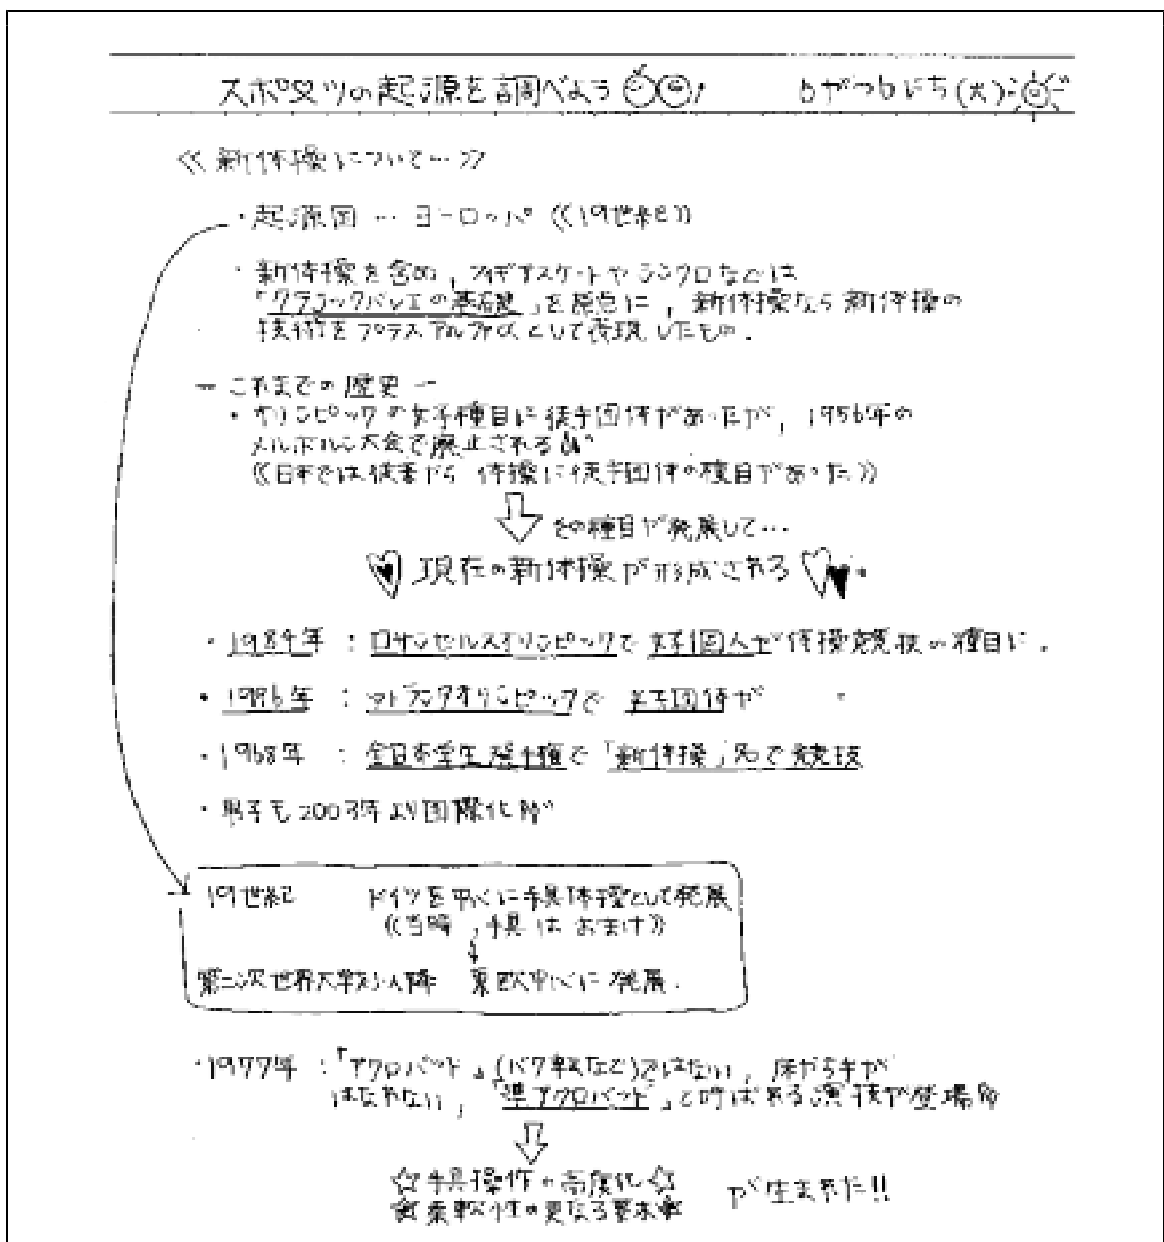 スポーツの起源を調べよう! 6がつ6にち(火)
《新体操について…》
・起源国…ヨーロッパ《19世紀》
・新体操を含め, フィギアスケートやシンクロなどは
「クラシックバレエの基礎」を原点に, 新体操なら新体操の
技術をプラスアルファαとして表現したもの.
ー これまでの歴史 ー
・オリンピックの女子種目に徒手団体があったが, 1956年の
メルボルン大会で廃止される
《日本では従来から 体操に徒手団体の種目があった》
その種目が発展して…
現在の新体操が形成される
・1984年 : ロサンゼルスオリンピックで 女子個人が体操競技の種目に.
・1996年 : アトランタオリンピックで 女子団体が 〃
・1968年 : 全日本学生選手権で「新体操」名で競技
・男子も2003年より国際化
19世紀 ドイツを中心に手具体操として発展
《当時, 手具はおまけ》
第二次世界大戦以降 東欧中心に発展.
・1977年 :「アクロバット」(バク転など)ではない, 床から手が
はなれない,「準アクロバット」と呼ばれる演技が登場
☆手具操作の高度化☆ が生まれた!!
☆柔軟性の更なる要求☆